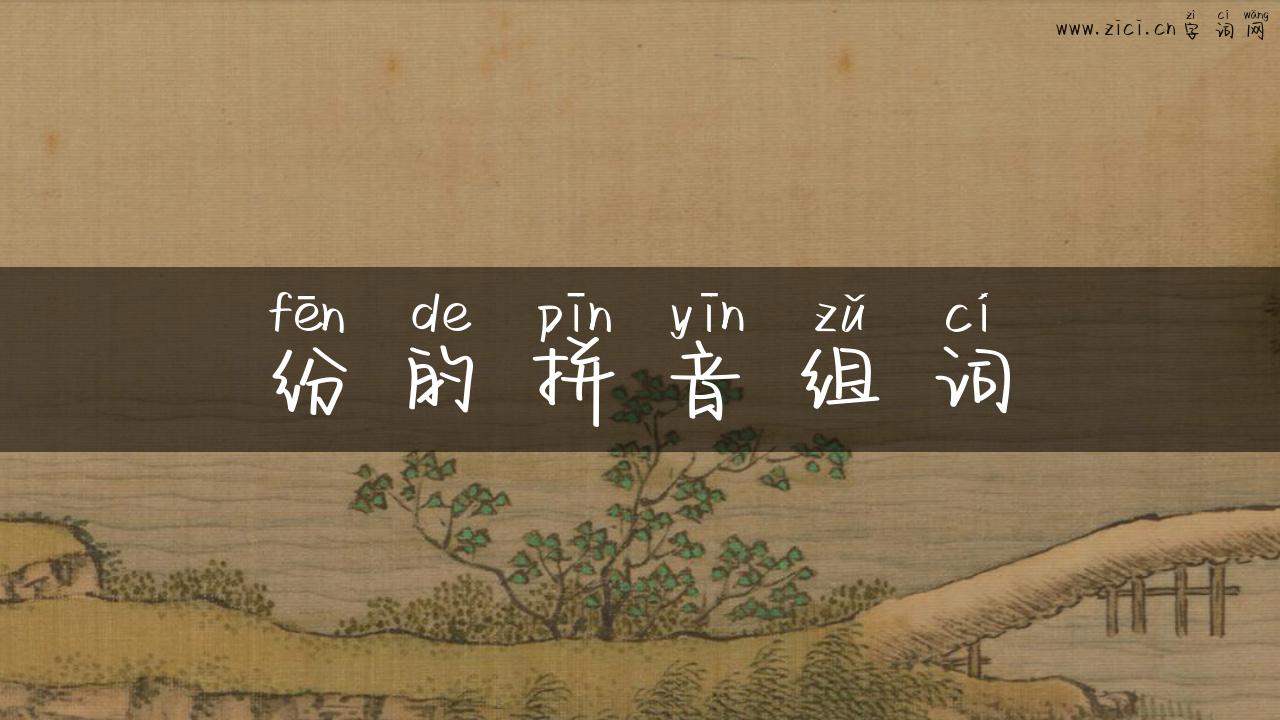 zì cí wǎng
www.zici.cn 字词网
fēn de pīn yīn zǔ cí
纷的拼音组词